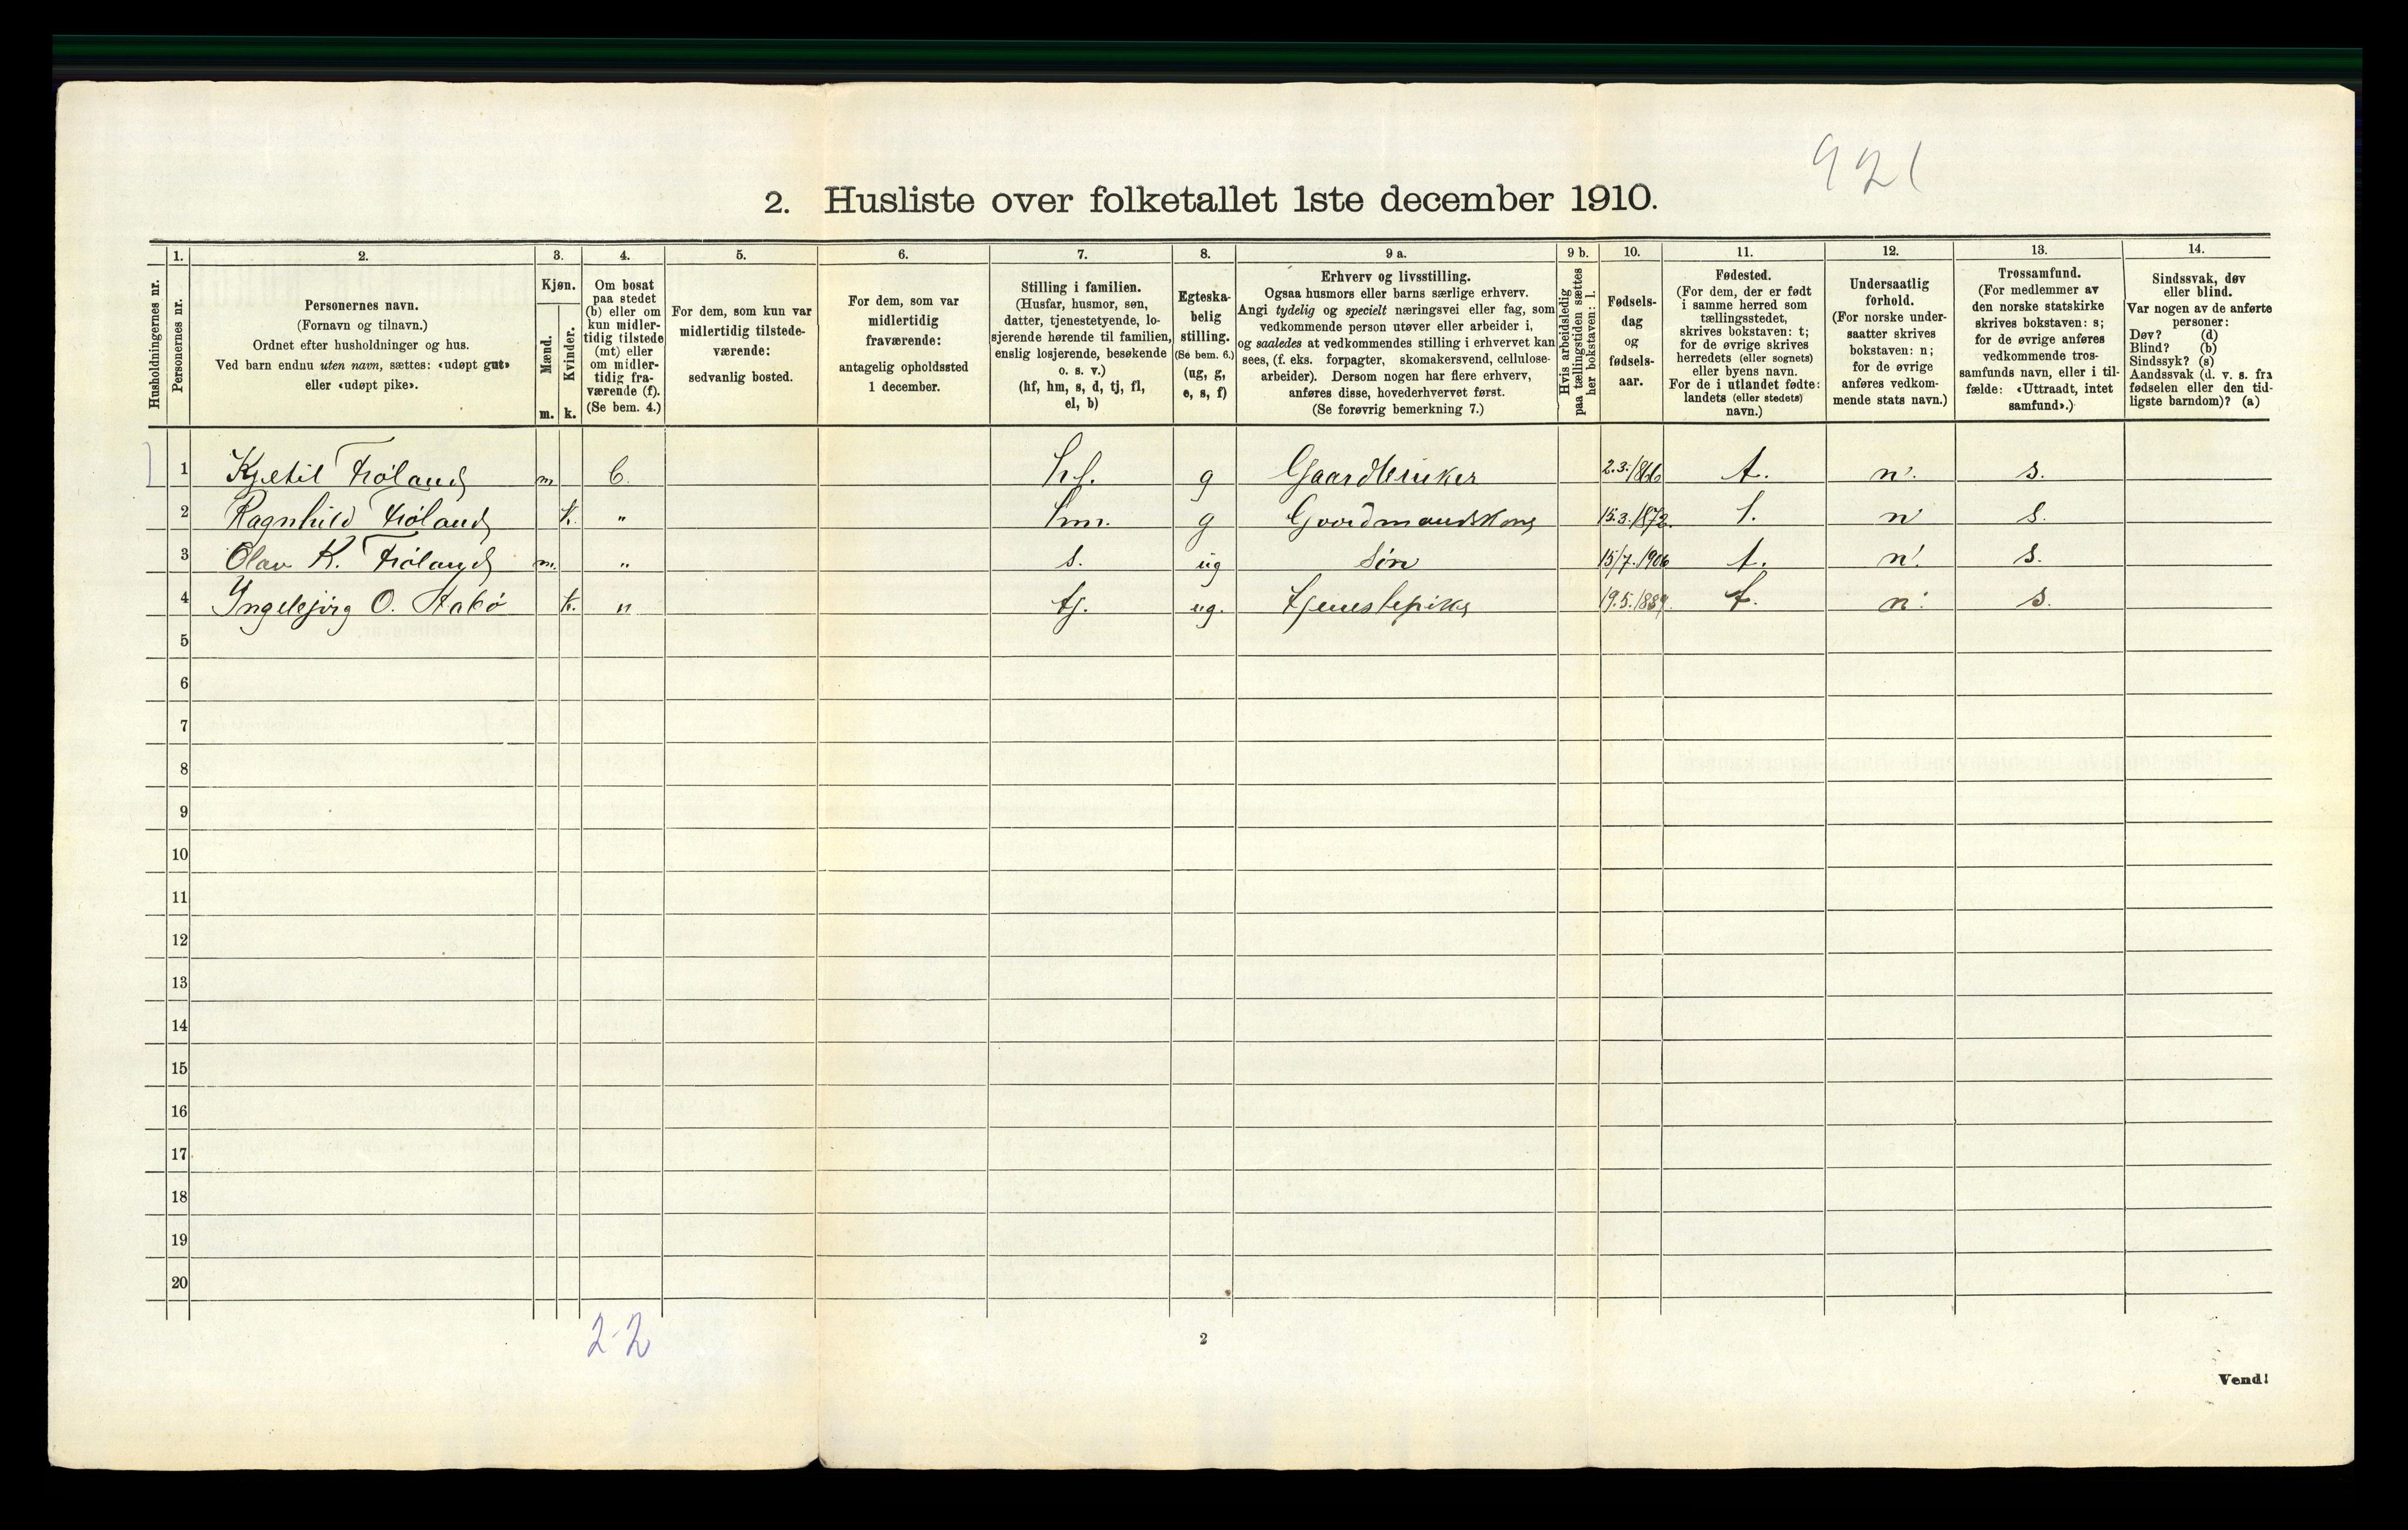 921
2. Husliste over folketallet 1ste december 1910.
Husholdningernes nr.
1. Personernes nr.
2. Personernes navn.
(Fornavn og tilnavn.)
Ordnet efter husholdninger og hus.
Ved barn endnu uten navn, sættes: «udøpt gut»
eller «udøpt pike».
3. Kjøn.
Mænd. m.
Kvinder. k.
4. Om bosat
paa stedet
(b) eller om
kun midler-
tidig tilstede
(mt) eller
om midler-
tidig fra-
værende (f).
(Se bem. 4.)
5. For dem, som kun var
midlertidig tilstede-
værende:
sedvanlig bosted.
6. For dem, som var
midlertidig
fraværende:
antagelig opholdssted
1 december.
7. Stilling i familien.
(Husfar, husmor, søn,
datter, tjenestetyende, lo-
sjerende hørende til familien,
enslig losjerende, besøkende
o. s. v.)
(hf, hm, s, d, tj, fl,
el, b)
8. Egteska-
belig
stilling.
(Se bem. 6.)
(ug, g,
e, s, f)
9 a. Erhverv og livsstilling.
Ogsaa husmors eller barns særlige erhverv.
Angi tydelig og specielt næringsvei eller fag, som
vedkommende person utøver eller arbeider i,
og saaledes at vedkommendes stilling i erhvervet kan
sees, (f. eks. forpagter, skomakersvend, cellulose-
arbeider). Dersom nogen har flere erhverv,
anføres disse, hovederhvervet først.
(Se forøvrig bemerkning 7.)
9 b. Hvis arbeidsledig
paa tællingstiden sættes
her bokstaven: l.
10. Fødsels-
dag
og
fødsels-
aar.
11. Fødested.
(For dem, der er født
i samme herred som
tællingsstedet,
skrives bokstaven: t;
for de øvrige skrives
herredets (eller sognets)
eller byens navn.
For de i utlandet fødte:
landets (eller stedets)
navn.)
12. Undersaatlig
forhold.
(For norske under-
saatter skrives
bokstaven: n;
for de øvrige
anføres vedkom-
mende stats navn.)
13. Trossamfund.
(For medlemmer av
den norske statskirke
skrives bokstaven: s;
for de øvrige anføres
vedkommende tros-
samfunds navn, eller i til-
fælde: «Uttraadt, intet
samfund».)
14. Sindssvak, døv
eller blind.
Var nogen av de anførte
personer:
Døv? (d)
Blind? (b)
Sindssyk? (s)
Aandssvak (d. v. s. fra
fødselen eller den tid-
ligste barndom)? (a)
1 Kjetil Frøland m. b. hf. g Gaardbruker 2.3./866 t. n. s.
2 Ragnhild Frøland k. " hm. g Gaardmandskone 15.3./872. t. n s.
3 Olav K. Frøland m. " s. ug Søn 15/7.1906 t. n. s.
4 Ingebjørg O. k. " tj. ug. Tjenestepike 19.5./889. t. n. s.
5
6
7
8
9
10
11
12
13
14
15
16
17
18
19
20
2-2
2
Vend!